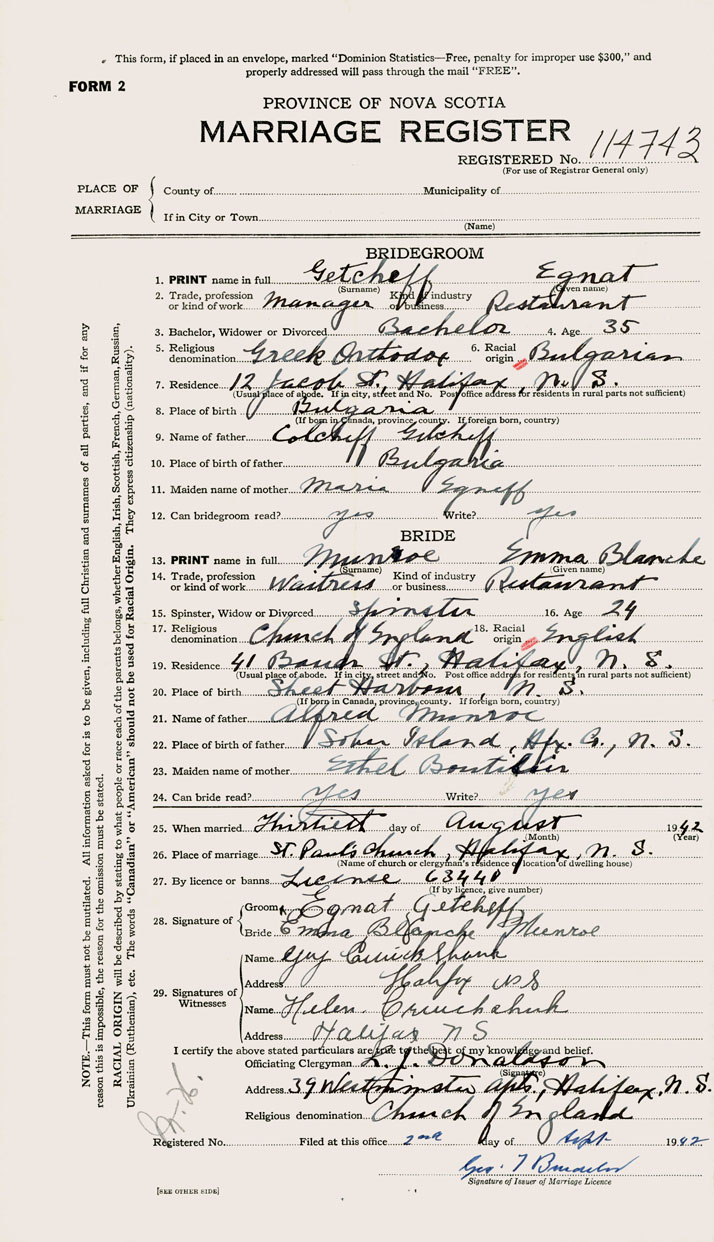 This form, if placed in an envelope, marked "Dominion Statistics—Free, penalty for improper use $300," and
properly addressed will pass through the mail "FREE".
FORM 2
PROVINCE OF NOVA SCOTIA
MARRIAGE REGISTER
REGISTERED No. 114743
(For use of Registrar General only)
PLACE OF MARRIAGE
County of Municipality of
If in City or Town
(Name)
BRIDEGROOM
1. PRINT name in full Getcheff Egnat
(Surname) (Given name)
2. Trade, profession or kind of work Manager Kind of industry or business Restaurant
3. Bachelor, Widower or Divorced Bachelor 4. Age 35
5. Religious denomination Greek Orthodox 6. Racial origin Bulgarian
7. Residence 12 Jacob St., Halifax, N. S.
(Usual place of abode. If in city, street and No. Post office address for residents in rural parts not sufficient)
8. Place of birth Bulgaria
(If born in Canada, province, county. If foreign born, country)
9. Name of father Colcheff Getcheff
10. Place of birth of father Bulgaria
11. Maiden name of mother Maria Egneff
12. Can bridegroom read? yes Write? yes
BRIDE
13. PRINT name in full Munroe Emma Blanche
(Surname) (Given name)
14. Trade, profession or kind of work Waitress Kind of industry or business Restaurant
15. Spinster, Widow or Divorced Spinster 16. Age 24
17. Religious denomination Church of England 18. Racial origin English
19. Residence 41 St., Halifax, N. S.
(Usual place of abode. If in city, street and No. Post office address for residents in rural parts not sufficient)
20. Place of birth Sheet Harbour, N. S.
(If born in Canada, province, county. If foreign born, country)
21. Name of father Alfred Munroe
22. Place of birth of father Sober Island, Hfx. Co., N. S.
23. Maiden name of mother Ethel Boutilier
24. Can bride read? Yes Write? yes
25. When married Thirtieth day of August 1942
(Month) (Year)
26. Place of marriage St. Paul's Church, Halifax, N. S.
(Name of church or clergyman's residence or location of dwelling house)
27. By licence or banns License 63440
(If by licence, give number)
28. Signature of
Groom Egnat Getcheff
Bride Emma Blanche Munroe
29. Signatures of Witnesses
Name Guy Cruickshank
Address Halifax NS
Name Helen Cruickshank
Address Halifax N S
I certify the above stated particulars are true to the best of my knowledge and belief.
Officiating Clergyman L. J. Donaldson
(Signature)
Address 39 Westminster Apts., Halifax, N. S.
Religious denomination Church of England
Registered No. Filed at this office 2nd day of Sept 1942
Geo. T
Signature of Issuer of Marriage Licence
[SEE OTHER SIDE]
NOTE.—This form must not be mutilated. All information asked for is to be given, including full Christian and surnames of all parties, and if for any
reason this is impossible, the reason for the omission must be stated.
RACIAL ORIGIN will be described by stating to what people or race each of the parents belongs, whether English, Irish, Scottish, French, German, Russian,
Ukrainian (Ruthenian), etc. The words "Canadian" or "American" should not be used for Racial Origin. They express citizenship (nationality).